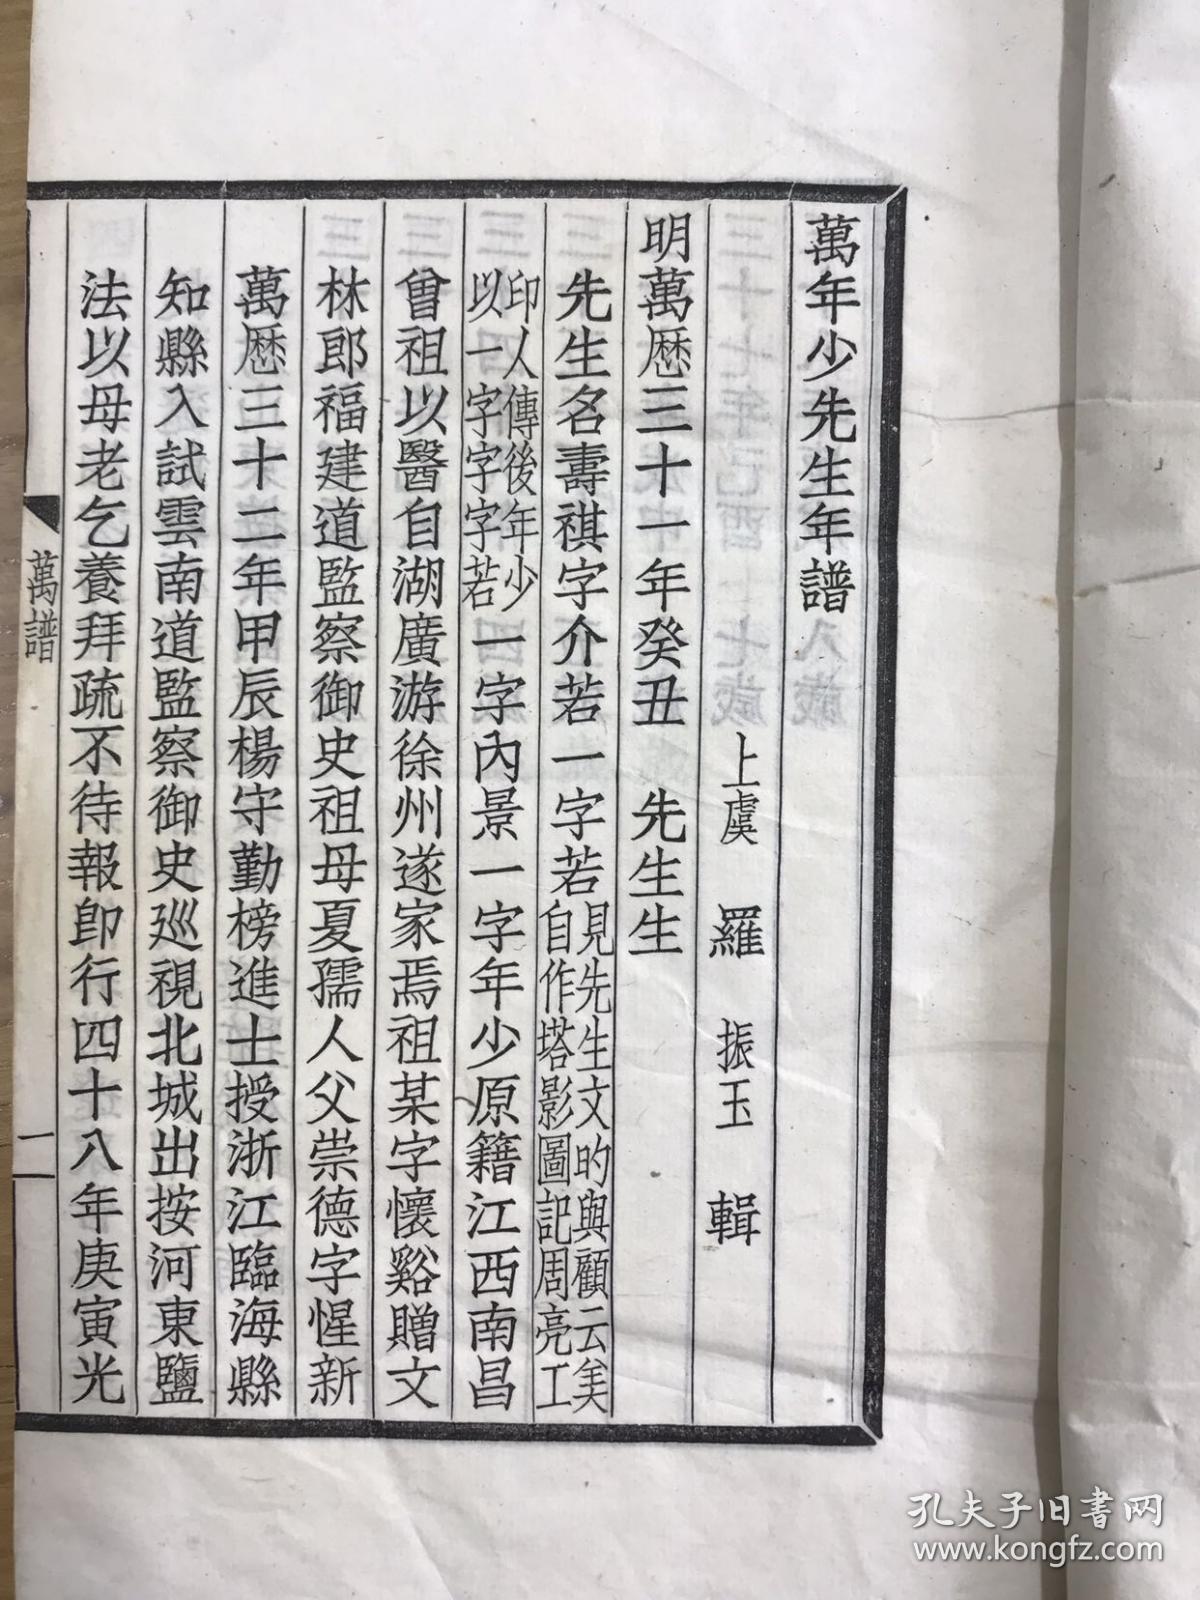 萬年少先生年譜
上虞 羅 振玉 輯
明萬厯三十一年癸丑 先生生
先生名壽祺字介若一字若見先生文旳與顧云美
自作塔影圖記周亮工
印人傳後年少
以一字字字若一字內景一字年少原籍江西南昌
曾祖以醫自湖廣游徐州遂家焉祖某字懷谿贈文
林郎福建道監察御史祖母夏孺人父崇德字惺新
萬厯三十二年甲辰楊守勤榜進士授浙江臨海縣
知縣入試雲南道監察御史巡視北城出按河東鹽
法以母老乞養拜疏不待報卽行四十八年庚寅光
萬譜
一
孔夫子旧书网
www.kongfz.com